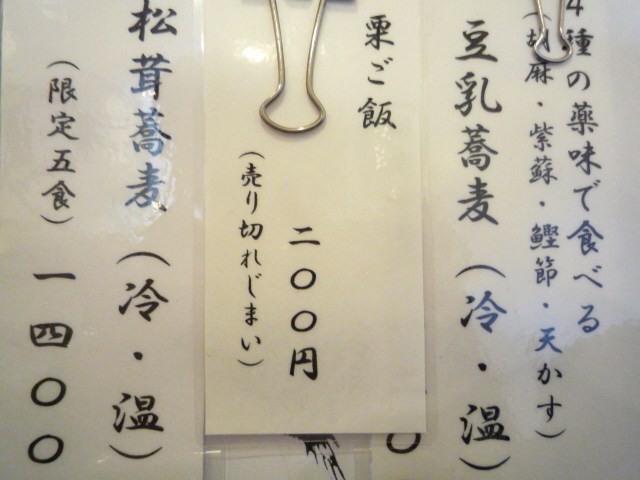 4種の薬味で食べる
(胡麻・紫蘇・鰹節・天かす)
豆乳蕎麦(冷・温)
〇
栗ご飯
二〇〇円
(売り切れじまい)
松茸蕎麦(冷・温)
(限定五食)一四〇〇